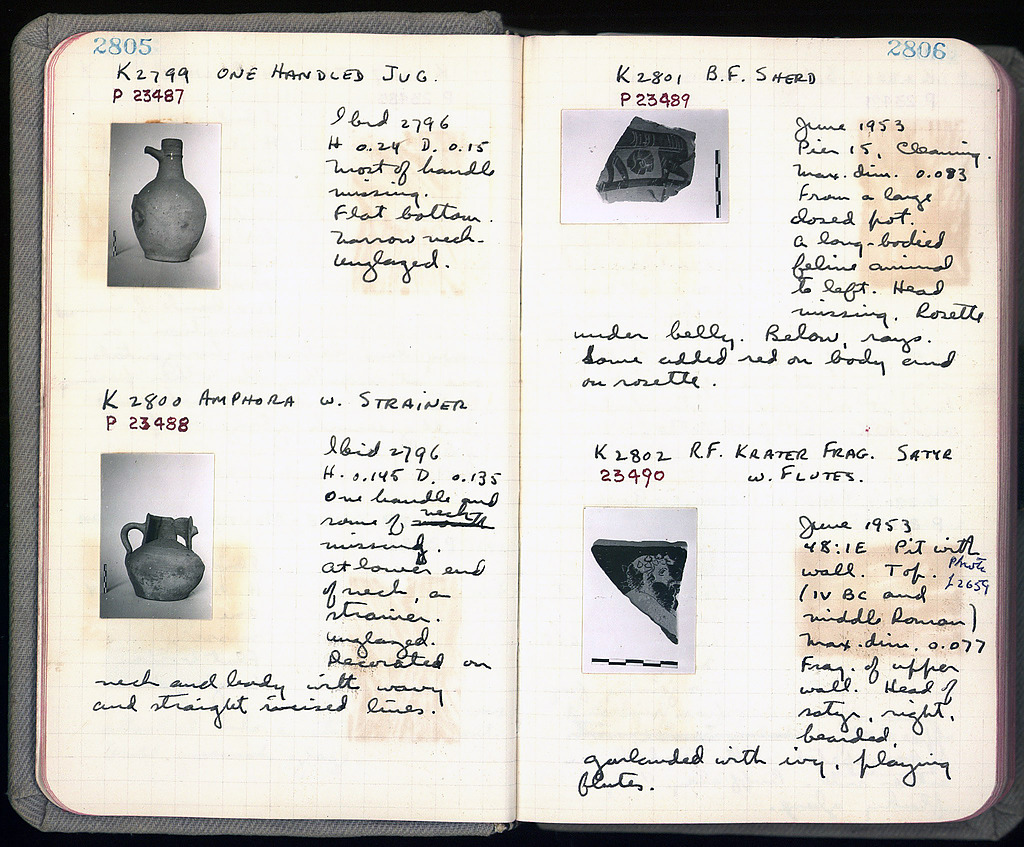 2805
K2799 ONE HANDLED JUG.
P 23487
Ibid 2796
H 0.24 D. 0.15
Most of handle
missing.
Flat bottom.
Narrow neck.
Unglazed.
K 2800 AMPHORA W. STRAINER
P 23488
Ibid 2796
H. 0.145 D. 0.135
One handle and
some of mouth neck
missing.
At lower end
of neck, a
strainer.
Unglazed.
Decorated on
neck and body with wavy
and straight incised lines.
2806
K2801 B.F. SHERD
P 23489
June 1953
Pier 15, Cleaning.
Max. dim. 0.083
From a large
closed pot.
A long-bodied
feline animal
to left. Head
missing. Rosette
under belly. Below, rays.
Some added red on body and
on rosette.
K2802 R.F. KRATER FRAG. SATYR
W. FLUTES.
23490
June 1953
48:1E Pit with
wall. Top.
Photo
L2659
(IV BC and
middle Roman)
Max. dim. 0.077
Frag. of upper
wall. Head of
satyr, right,
bearded,
garlanded with ivy, playing
flutes.